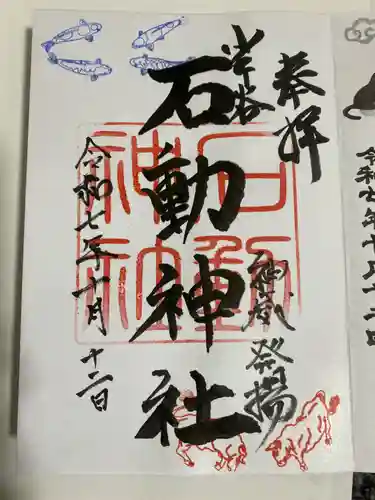 奉拝
石動神社
神威発揚
令和七年十月十二日
石動
神社
令和七年十月十二日